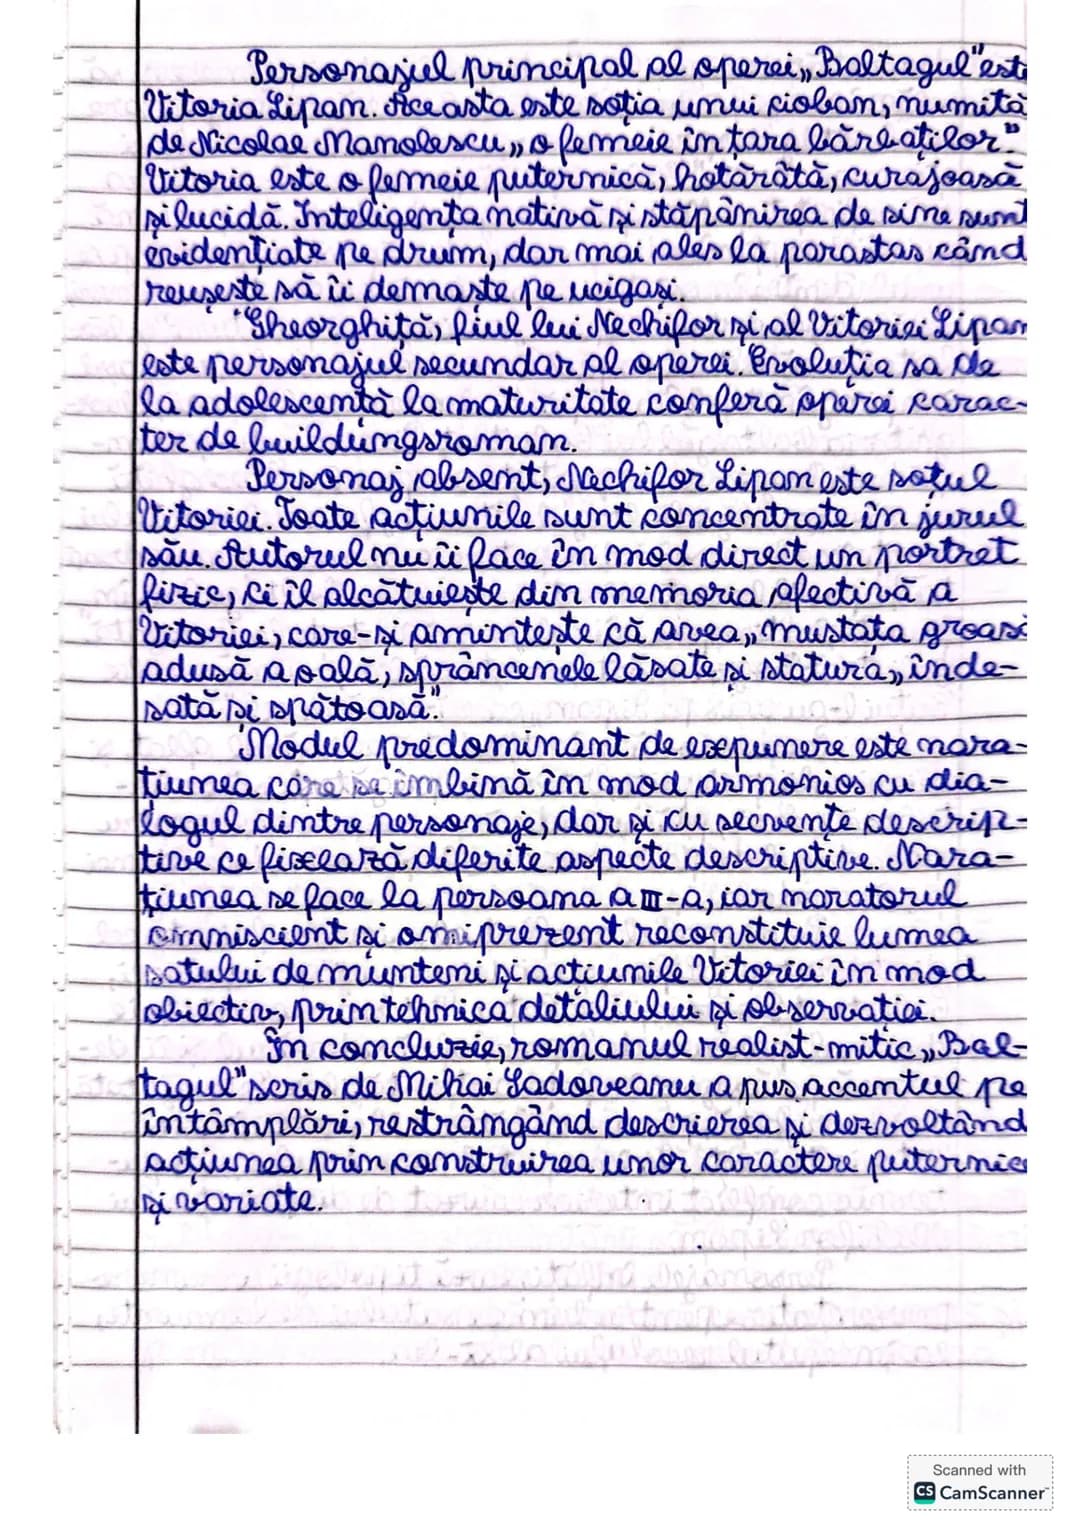 Personajul principal al operei „Baltagul" este
Vitoria Lipan. Aceasta este soția unui cioban, numită
de Nicolae Manolescu „o femeie în țara bărbaților".
Vitoria este o femeie puternică, hotărâtă, curajoasă
și lucidă. Inteligența nativă și stăpânirea de sine sunt
evidențiate pe drum, dar mai ales la parastas când
reușește să îi demaște pe ucigași.
Gheorghiță, fiul lui Nechifor și al Vitoriei Lipan
este personajul secundar al operei. Evoluția sa de
la adolescență la maturitate conferă operei carac-
ter de buildungsroman.
Personaj absent, Nechifor Lipan este soțul
Vitoriei. Toate acțiunile sunt concentrate în jurul
său. Autorul nu îi face în mod direct un portret
fizic, ci îl alcătuiește din memoria afectivă a
Vitoriei, care-și amintește că avea „mustața groasă
adusă a oală, sprâncenele lăsate și statura „înde-
sată și spătoasă."
Modul predominant de expunere este nara-
țiunea care se îmbină în mod armonios cu dia-
logul dintre personaje, dar și cu secvențe descrip-
tive ce fixează diferite aspecte descriptive. Nara-
țiunea se face la persoana a III-a, iar naratorul
omniscient și omiprezent reconstituie lumea
satului de munteni și acțiunile Vitoriei în mod
obiectiv, prin tehnica detaliului și observației.
În concluzie, romanul realist-mitic „Bal-
tagul" scris de Mihai Sadoveanu a pus accentul pe
întâmplări, restrângând descrierea și dezvoltând
acțiunea prin construirea unor caractere puternice
și variate.
Scanned with
CS CamScanner